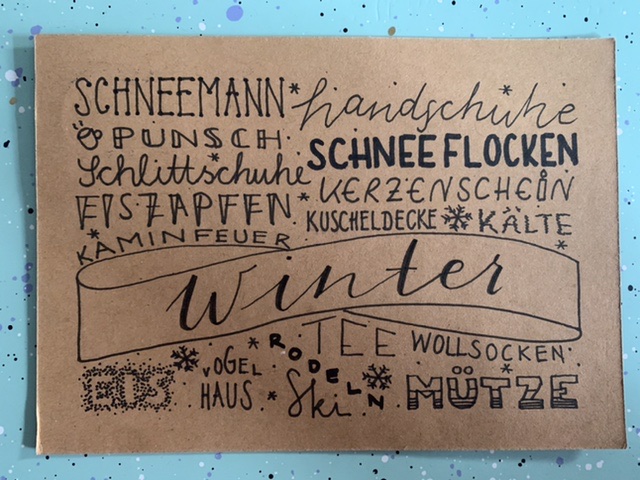 SCHNEEMANN handschuhe
PUNSCH SCHNEEFLOCKEN
Schlittschuhe KERZENSCHEIN
EISZAPFEN KUSCHELDECKE KÄLTE
KAMINFEUER
Winter
TEE WOLLSOCKEN
EIS VOGEL HAUS RODELN Ski MÜTZE